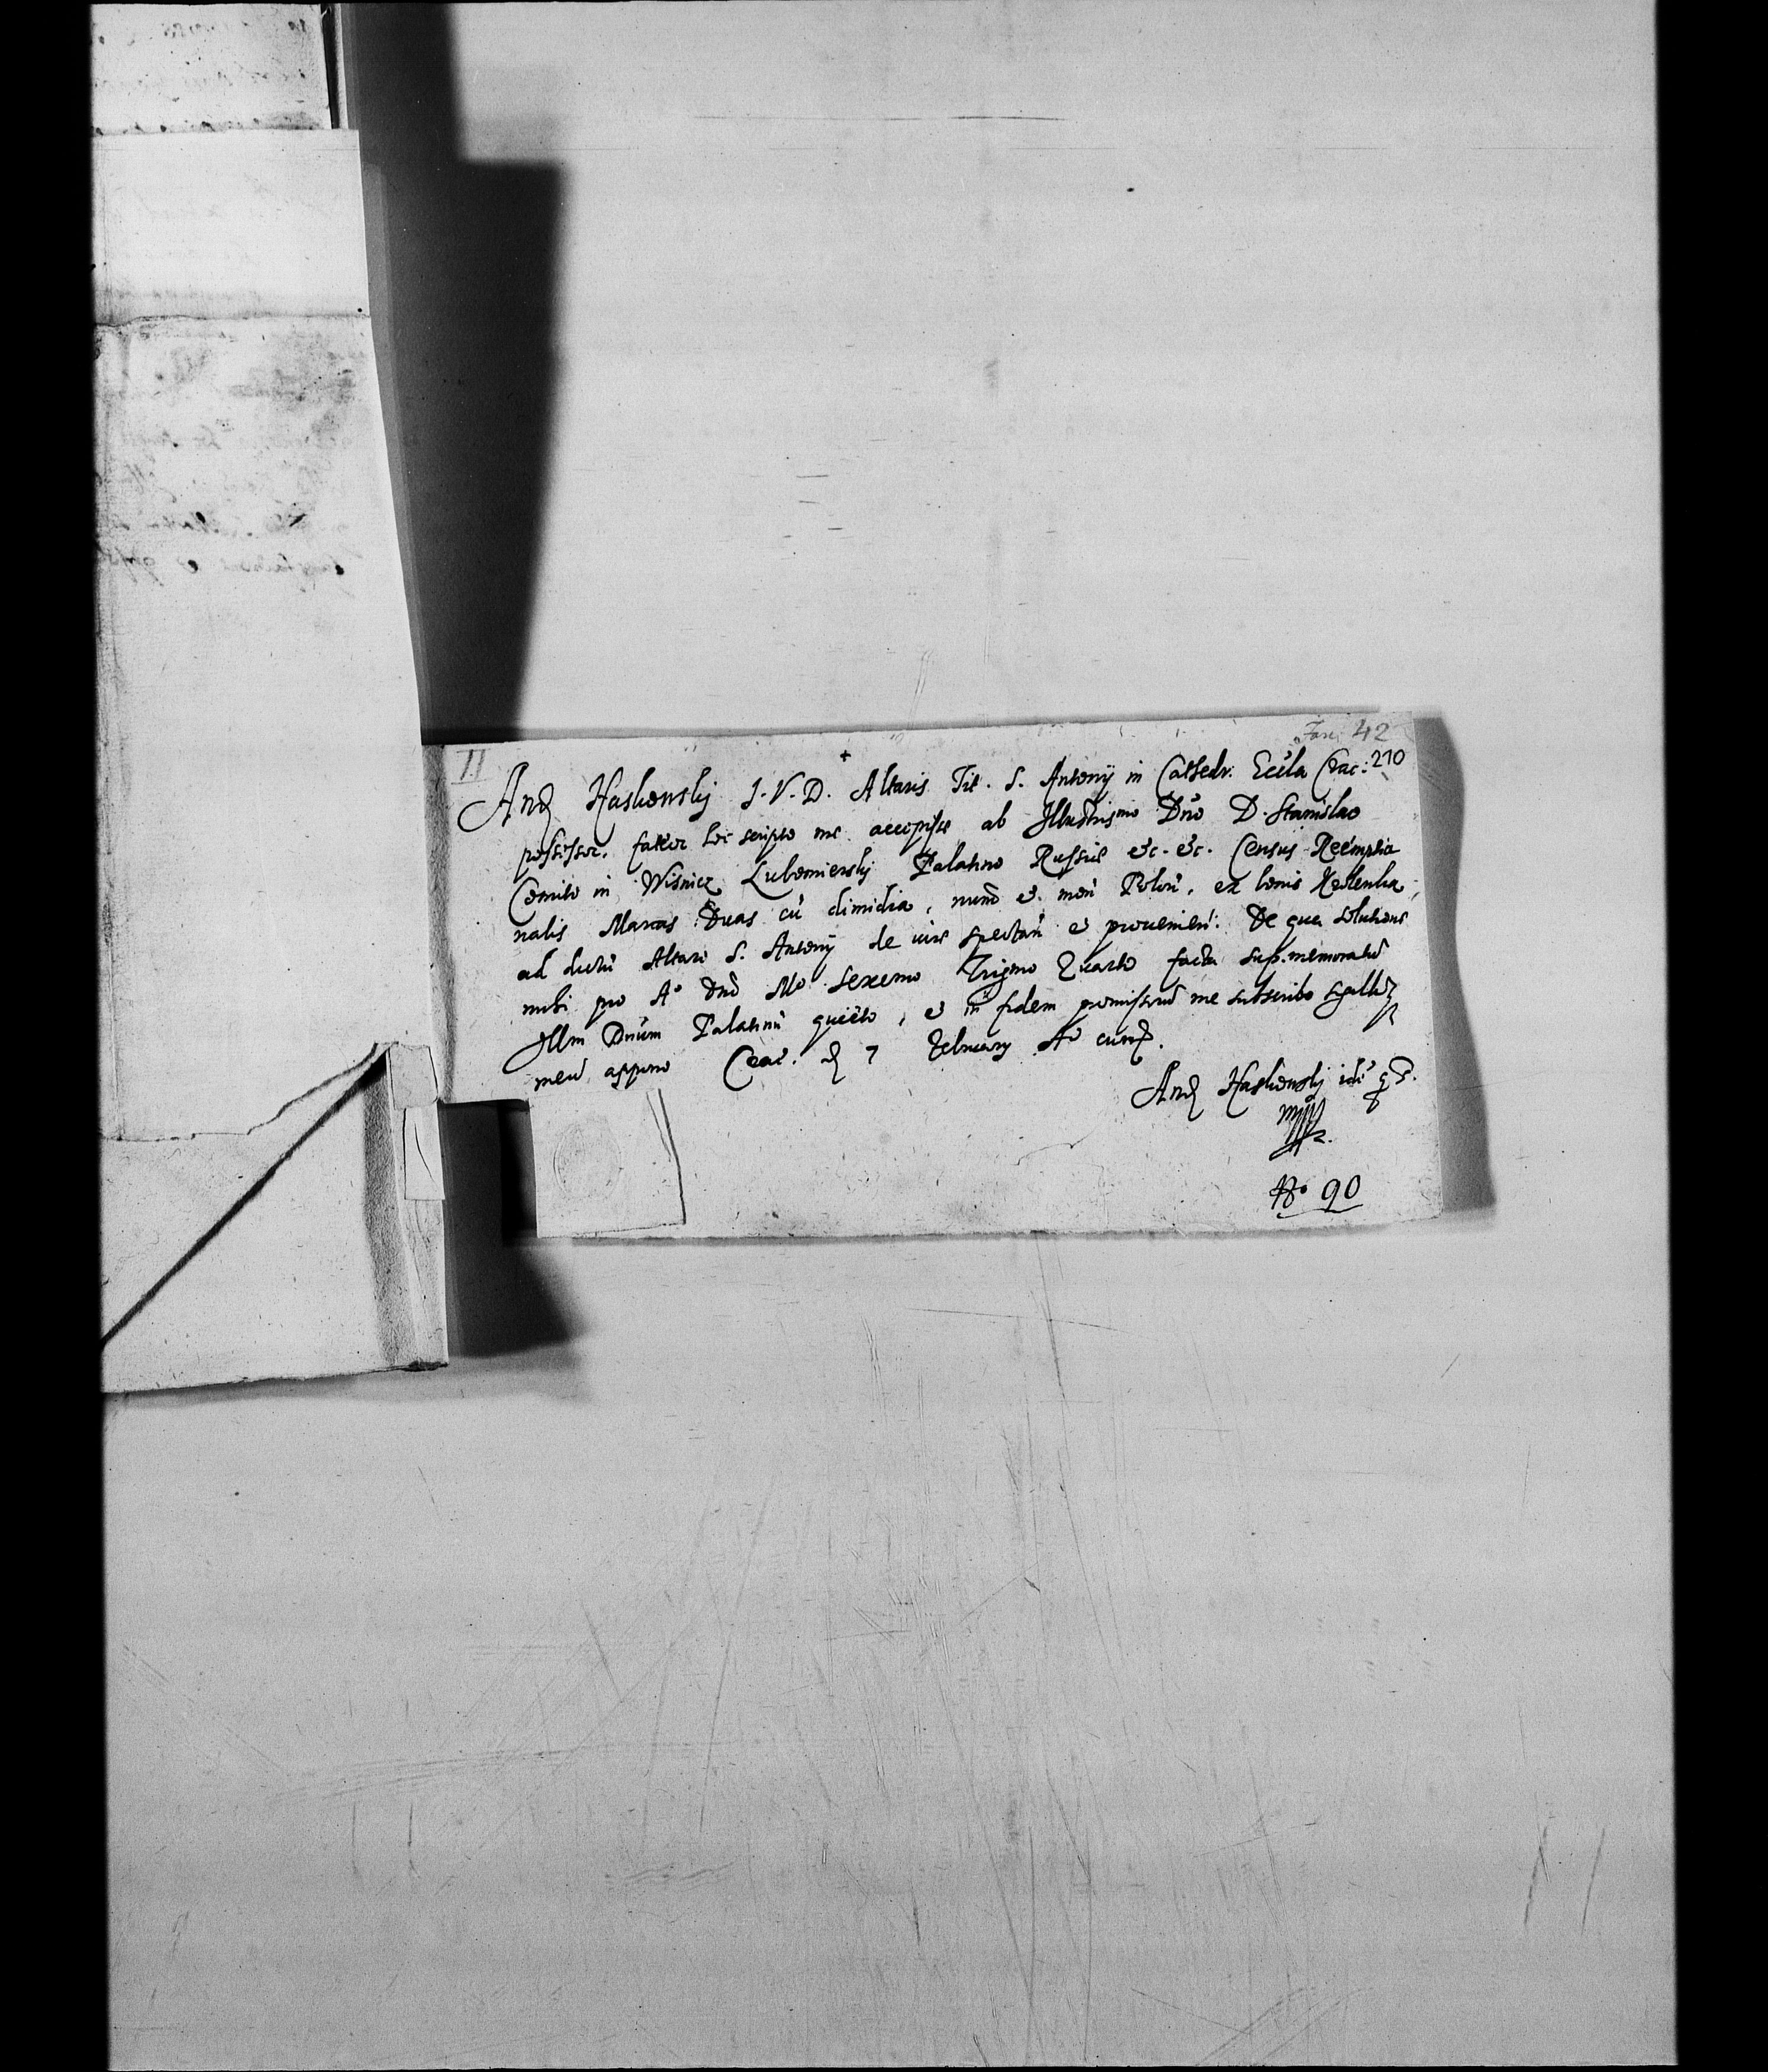 11
Fasc. 42
+
210
And Haskowskj J. V. D. Altaris Tit. S. Antonij in Cathedr. Eccla Crac:
possessor. fateor hoc scripto me accepisse ab Illustrismo Dno D. Stanislao
Comite in Wisnicz Lubomierskj Palatino Russiæ &c. &c. Census Reemptio
nalis Marcas Duas cū dimidia, numō et mon Polon. ex bonis
ad dictū Altare S. Antonij de iure spectān et provenien: De qua solutione
mihi pro Ao Dno Mo sexcmo Trigmo Quarto facta sup. memoratū
Illm Dnūm Palatinū quieto, et in fidem promissorū me subscribo sigillūq
meū appono Crac. d 7 February Ao curr.
And Haskowskj idē q s.
mpp
No 90